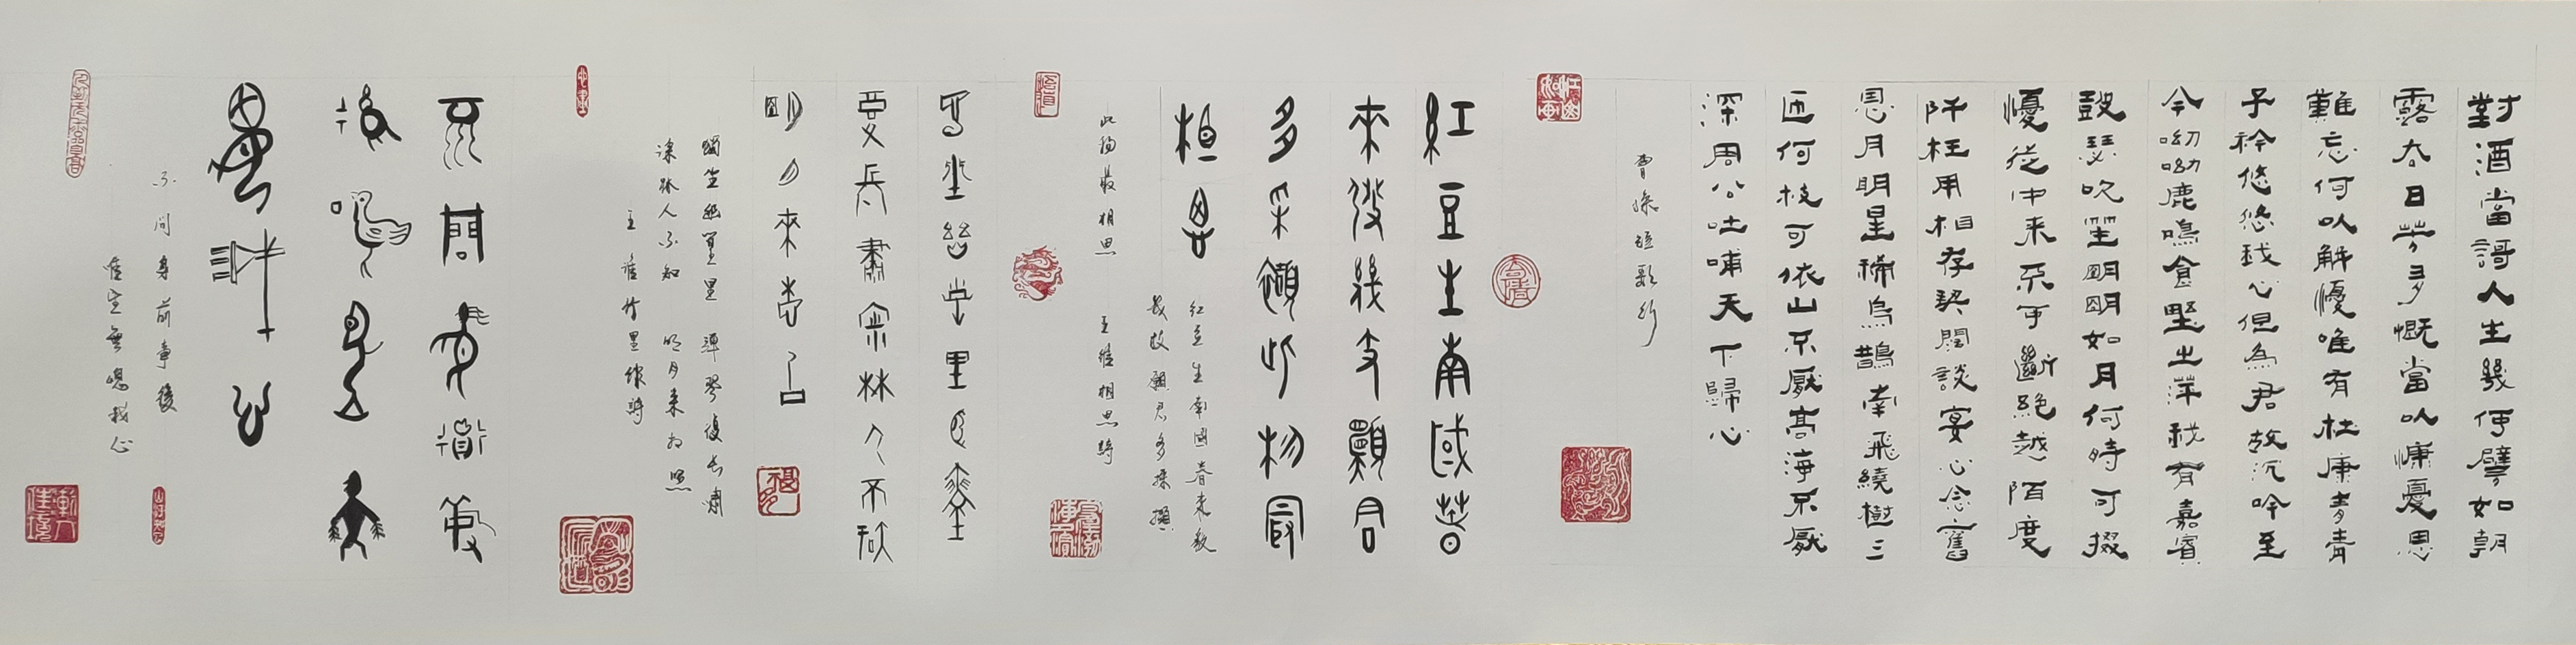 對酒當謌人生幾何譬如朝
露去日苦多慨當以慷憂思
難忘何以解憂唯有杜康青青
子衿悠悠我心但為君故沉吟至
今呦呦鹿鳴食野之苹我有嘉賓
鼓瑟吹笙明明如月何時可掇
憂從中來不可斷絕越陌度
阡枉用相存契闊談宴心念舊
恩月明星稀烏鵲南飛繞樹三
匝何枝可依山不厭高海不厭
深周公吐哺天下歸心
曹操短歌行
紅豆生南國春
來發幾支願君
多采擷此物最
相思
紅豆生南國春來發
幾枝願君多採擷
此物最相思 王維相思詩
獨坐幽篁里彈琴
復長嘯深林人不知
明月來相照
獨坐幽篁里 彈琴復長嘯
深林人不知 明月來相照
王維竹里館詩
不問身前
後唯
我心
不問身前章後
惟室無愧我心